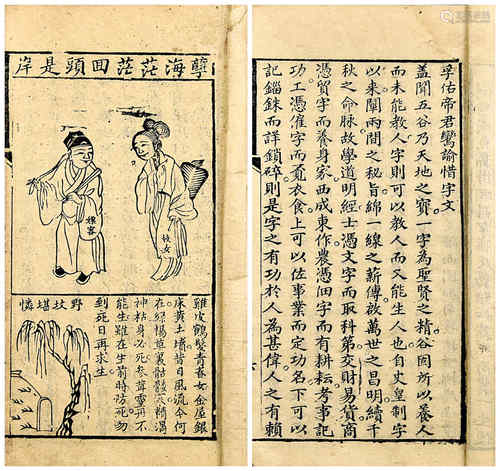 孽海茫茫回頭是岸
嫖客
妓女
野坟堪憐
雞皮鶴髮青春女金屋銀
床黃土墻昔日風流今何
在綠楊草裏骷髏穴精凋
神枯身必死參茸靈丹不
能生雖在生前時防死勿
到死日再求生
孚佑帝君鸞諭惜字文
蓋聞五谷乃天地之寶一字為聖賢之精谷固所以養人
而未能教人字則可以教人而又能生人也自史皇制字
以來闡兩間之秘旨綿一線之薪傳啟萬世之昌明續千
秋之命脉故學道明經士憑文字而取科第交財易貨商
憑貿字而養身家西成東作農憑佃字而有耕耘考事記
功工憑僱字而覓衣食上可以佐事業而定功名下可以
記錙銖而詳鎖碎則是字之有功於人為甚偉人之有賴